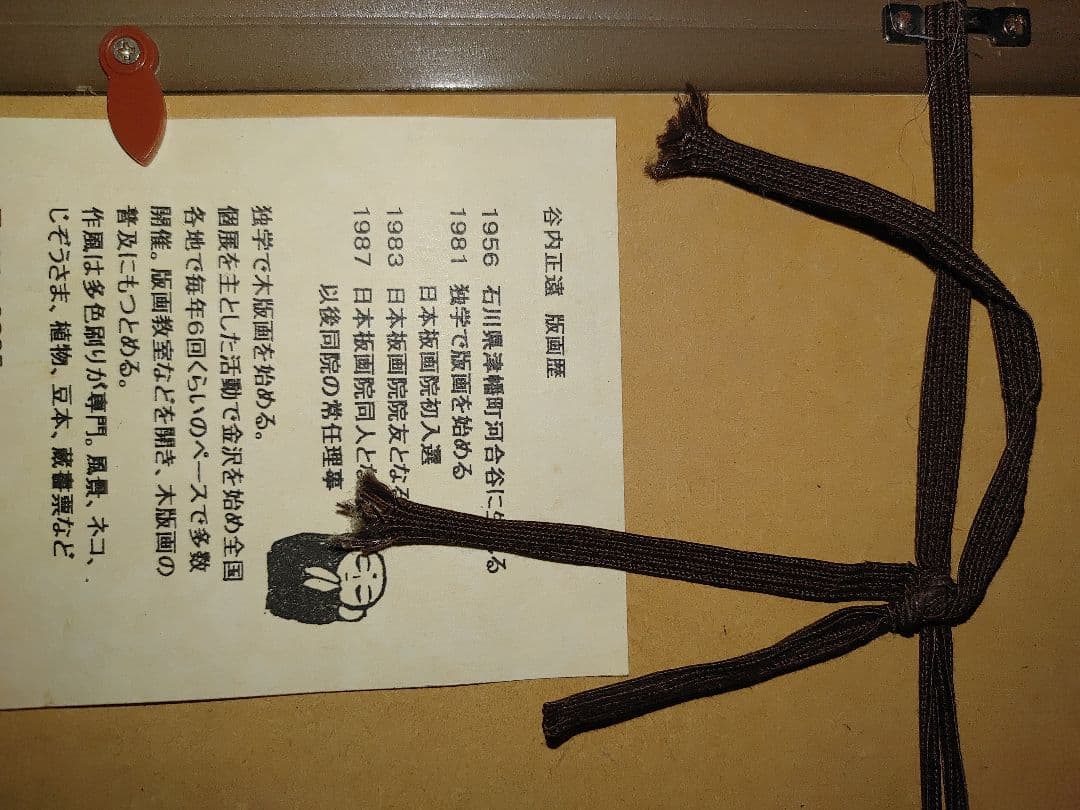 谷内正遠 版画歴
1956 石川県津幡町河合谷に生 る
1981 独学で版画を始める
日本板画院初入選
1983 日本板画院院友となる
1987 日本板画院同人とな
以後同院の常任理事
独学で木版画を始める。
個展を主とした活動で金沢を始め全国
各地で毎年6回くらいのペースで多数
開催。版画教室などを開き、木版画の
普及にもつとめる。
作風は多色刷りが専門。風景、ネコ、
じぞうさま、植物、豆本、蔵書票など